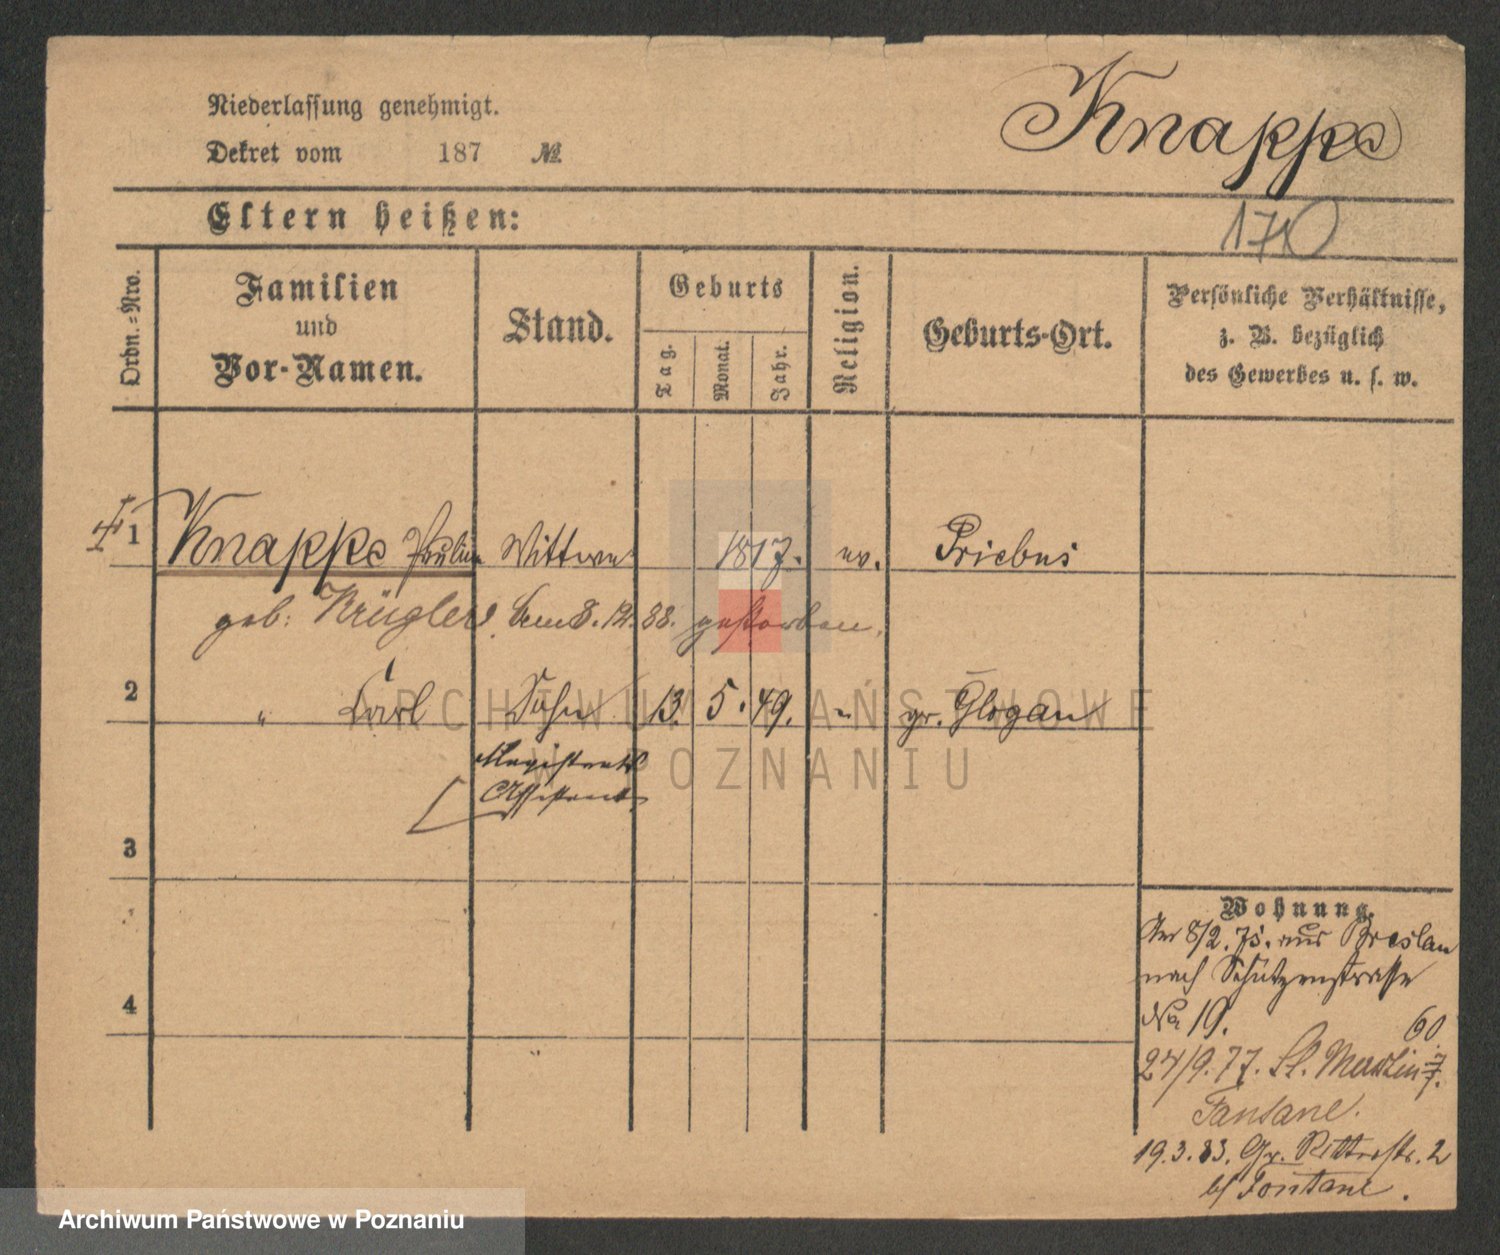 Niederlassung genehmigt.
Dekret vom 187 №
Knappe
Eltern heißen:
170
Ordn.-Nro.
Familien
und
Vor-Namen.
Stand.
Geburts
Tag.
Monat.
Jahr.
Religion.
Geburts-Ort.
Persönliche Verhältnisse,
z. B. bezüglich
des Gewerbes u. s. w.
1 Knappe Pauline Wittwe 1817. ev. Priebus
geb: Krügler, am 8.12.88. gestorben.
2 " Carl Sohn 13. 5. 49. " gr. Glogau
Magistrats
Assistent
3
4
Wohnung.
8/2. 75. aus Breslau
nach Schützenstrasse
No 19.
60
24/9. 77. St. Martin
Fontane.
19.3.83. Gr. Ritterstr. 2
b/ Fontane.
ARCHIWUM PAŃSTWOWE
W POZNANIU
Archiwum Państwowe w Poznaniu